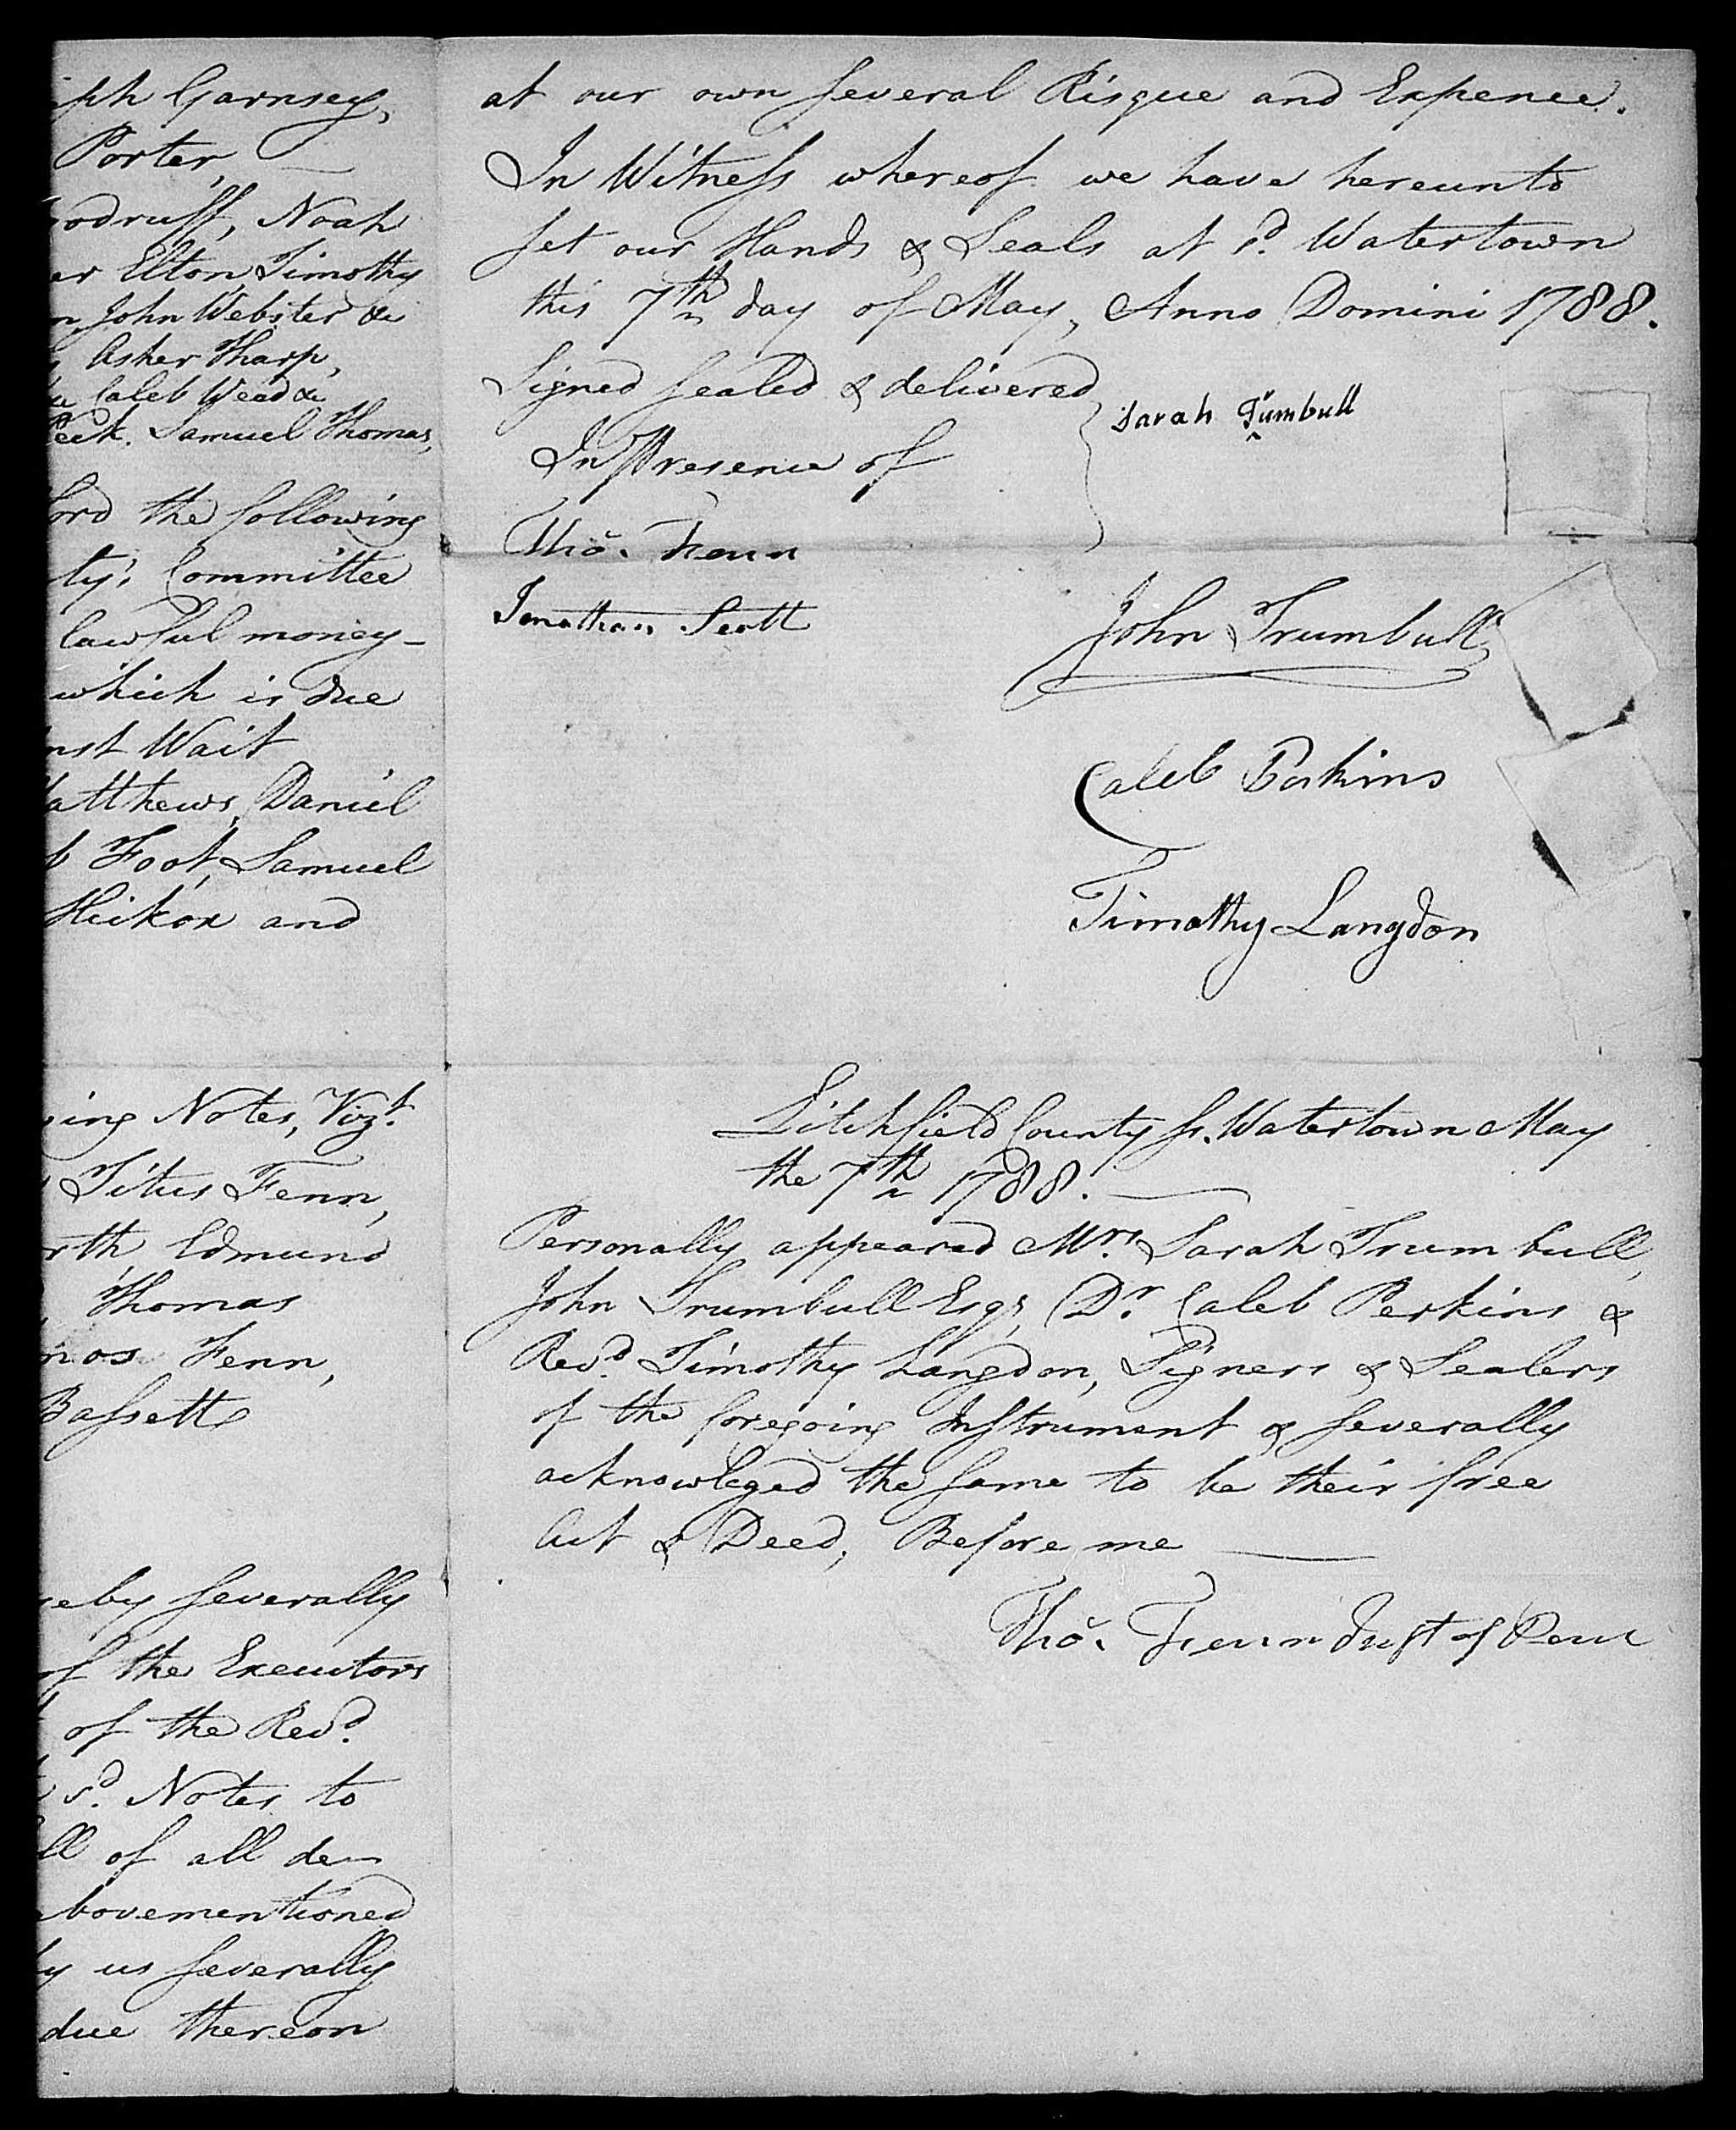 iph Garnsey,
Porter,
odruff, Noah
er Elton, Timothy
n, John Webster &c
Asher Tharp,
Caleb Weed &c
Peck. Samuel Thomas,
ford the following
ty's Committee
lawful money
which is due
nst Wait
atthews, Daniel
b Foot, Samuel
Hickox and
ing Notes, Vizt.
Titus Fenn,
rth, Edmund
Thomas
mos Fenn,
Bassett
reby severally
of the Executors
of the Revd.
sd. Notes to
ll of all de
bovementioned
by us severally
due thereon
at our own several Risque and Expence.
In Witness whereof we have hereunto
set our Hands & Seals at sd. Watertown
this 7th day of May, Anno Domini 1788.
Signed sealed & delivered
In Presence of
Tho. Fenn
Jonathan Scott
Sarah Trumbull
John Trumbull
Caleb Perkins
Timothy Langdon
Litchfield County ss. Watertown May
the 7th 1788.
Personally appeared Mrs. Sarah Trumbull,
John Trumbull Esqr, Dr. Caleb Perkins &
Revd. Timothy Langdon, Signers & Sealers
of the foregoing Instrument & severally
acknowleged the same to be their free
Act & Deed, Before me
Tho. Fenn Just of Peace